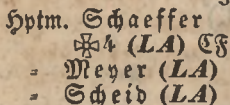 Hptm. Schaeffer
✠4 (LA) CF
= Meyer (LA)
= Scheid (LA)